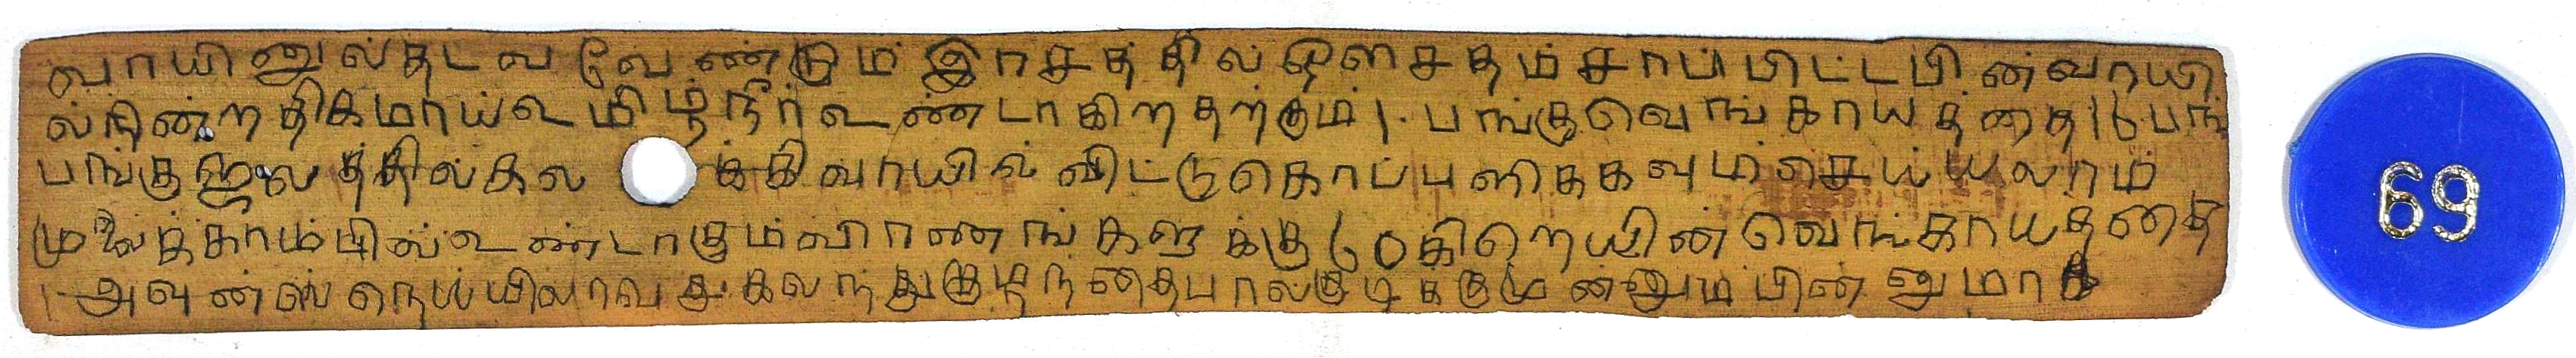 வாயினுல்தடவ வேண்டும் இரசத்தில் ஒளசதம் சாப்பிட்டபின் வாயி
ல்நின்றதிகமாய் உமிழ்நீர் உண்டாகிறதற்கும் 1 பங்கு வெங்காயத்தை 16 பங்
பங்கு ஜலத்தில் கலக்கி வாயில் விட்டு கொப்பளிக்கவும் செய்யலாம்
முலைக்காம்பில் உண்டாகும் விரணங்களுக்கு 60 கிறெயின் வெங்காயத்தை
1 அவுன்ஸ் நெய்யிலாவது கலந்து குழந்தை பால் குடிக்குமுன்னும் பின்னுமாக
69